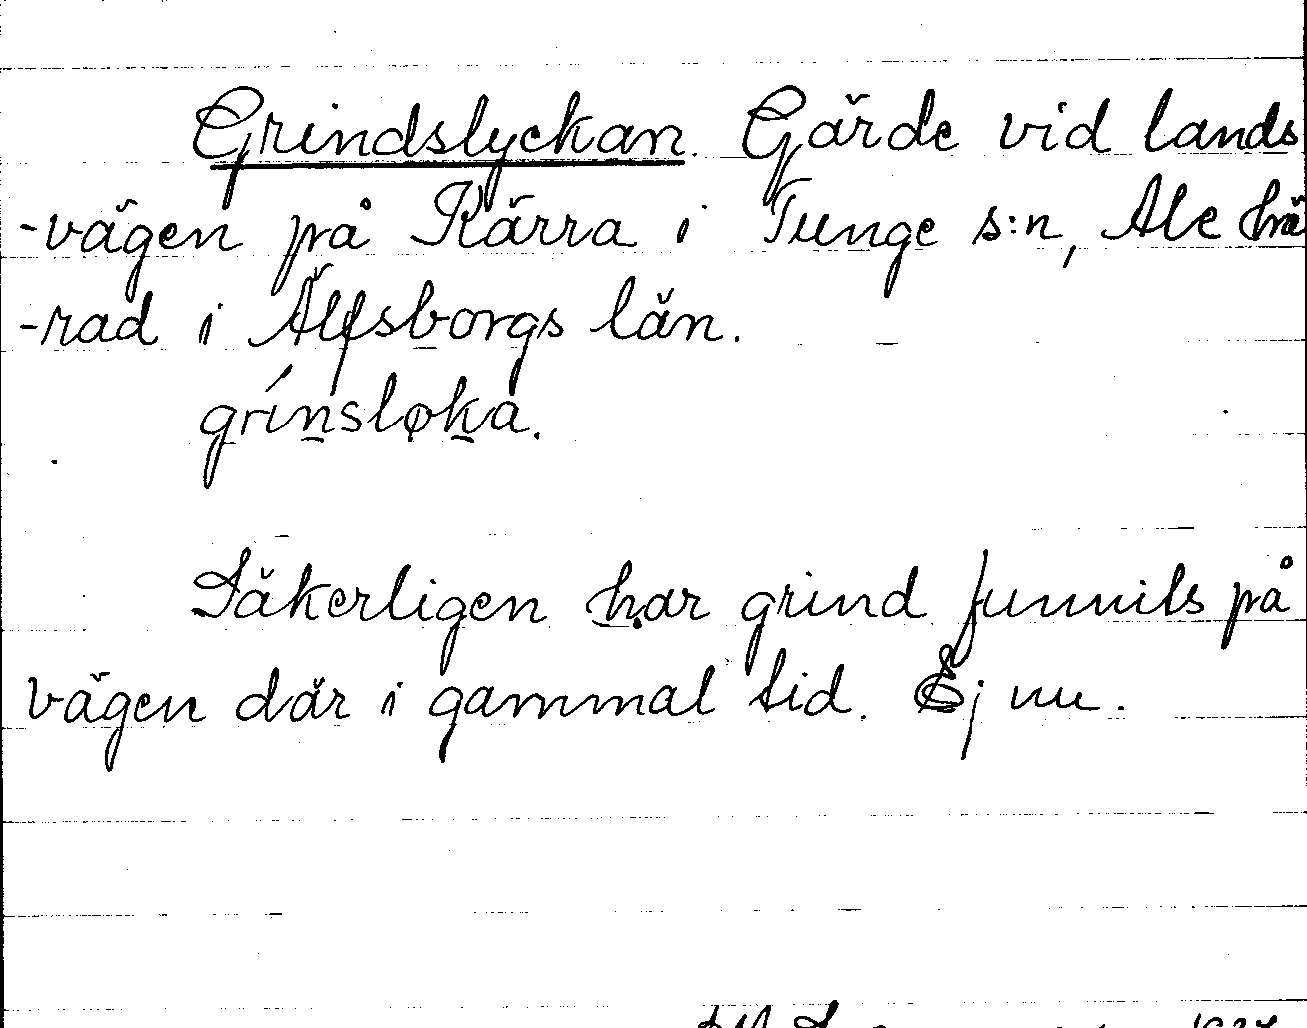 Grindslyckan. Gärde vid lands
-vägen på Kärra i Tunge s:n, Ale hä
-rad i Älfsborgs län.
grínsløka.
Säkerligen har grind funnits på
vägen där i gammal tid. Ej nu.